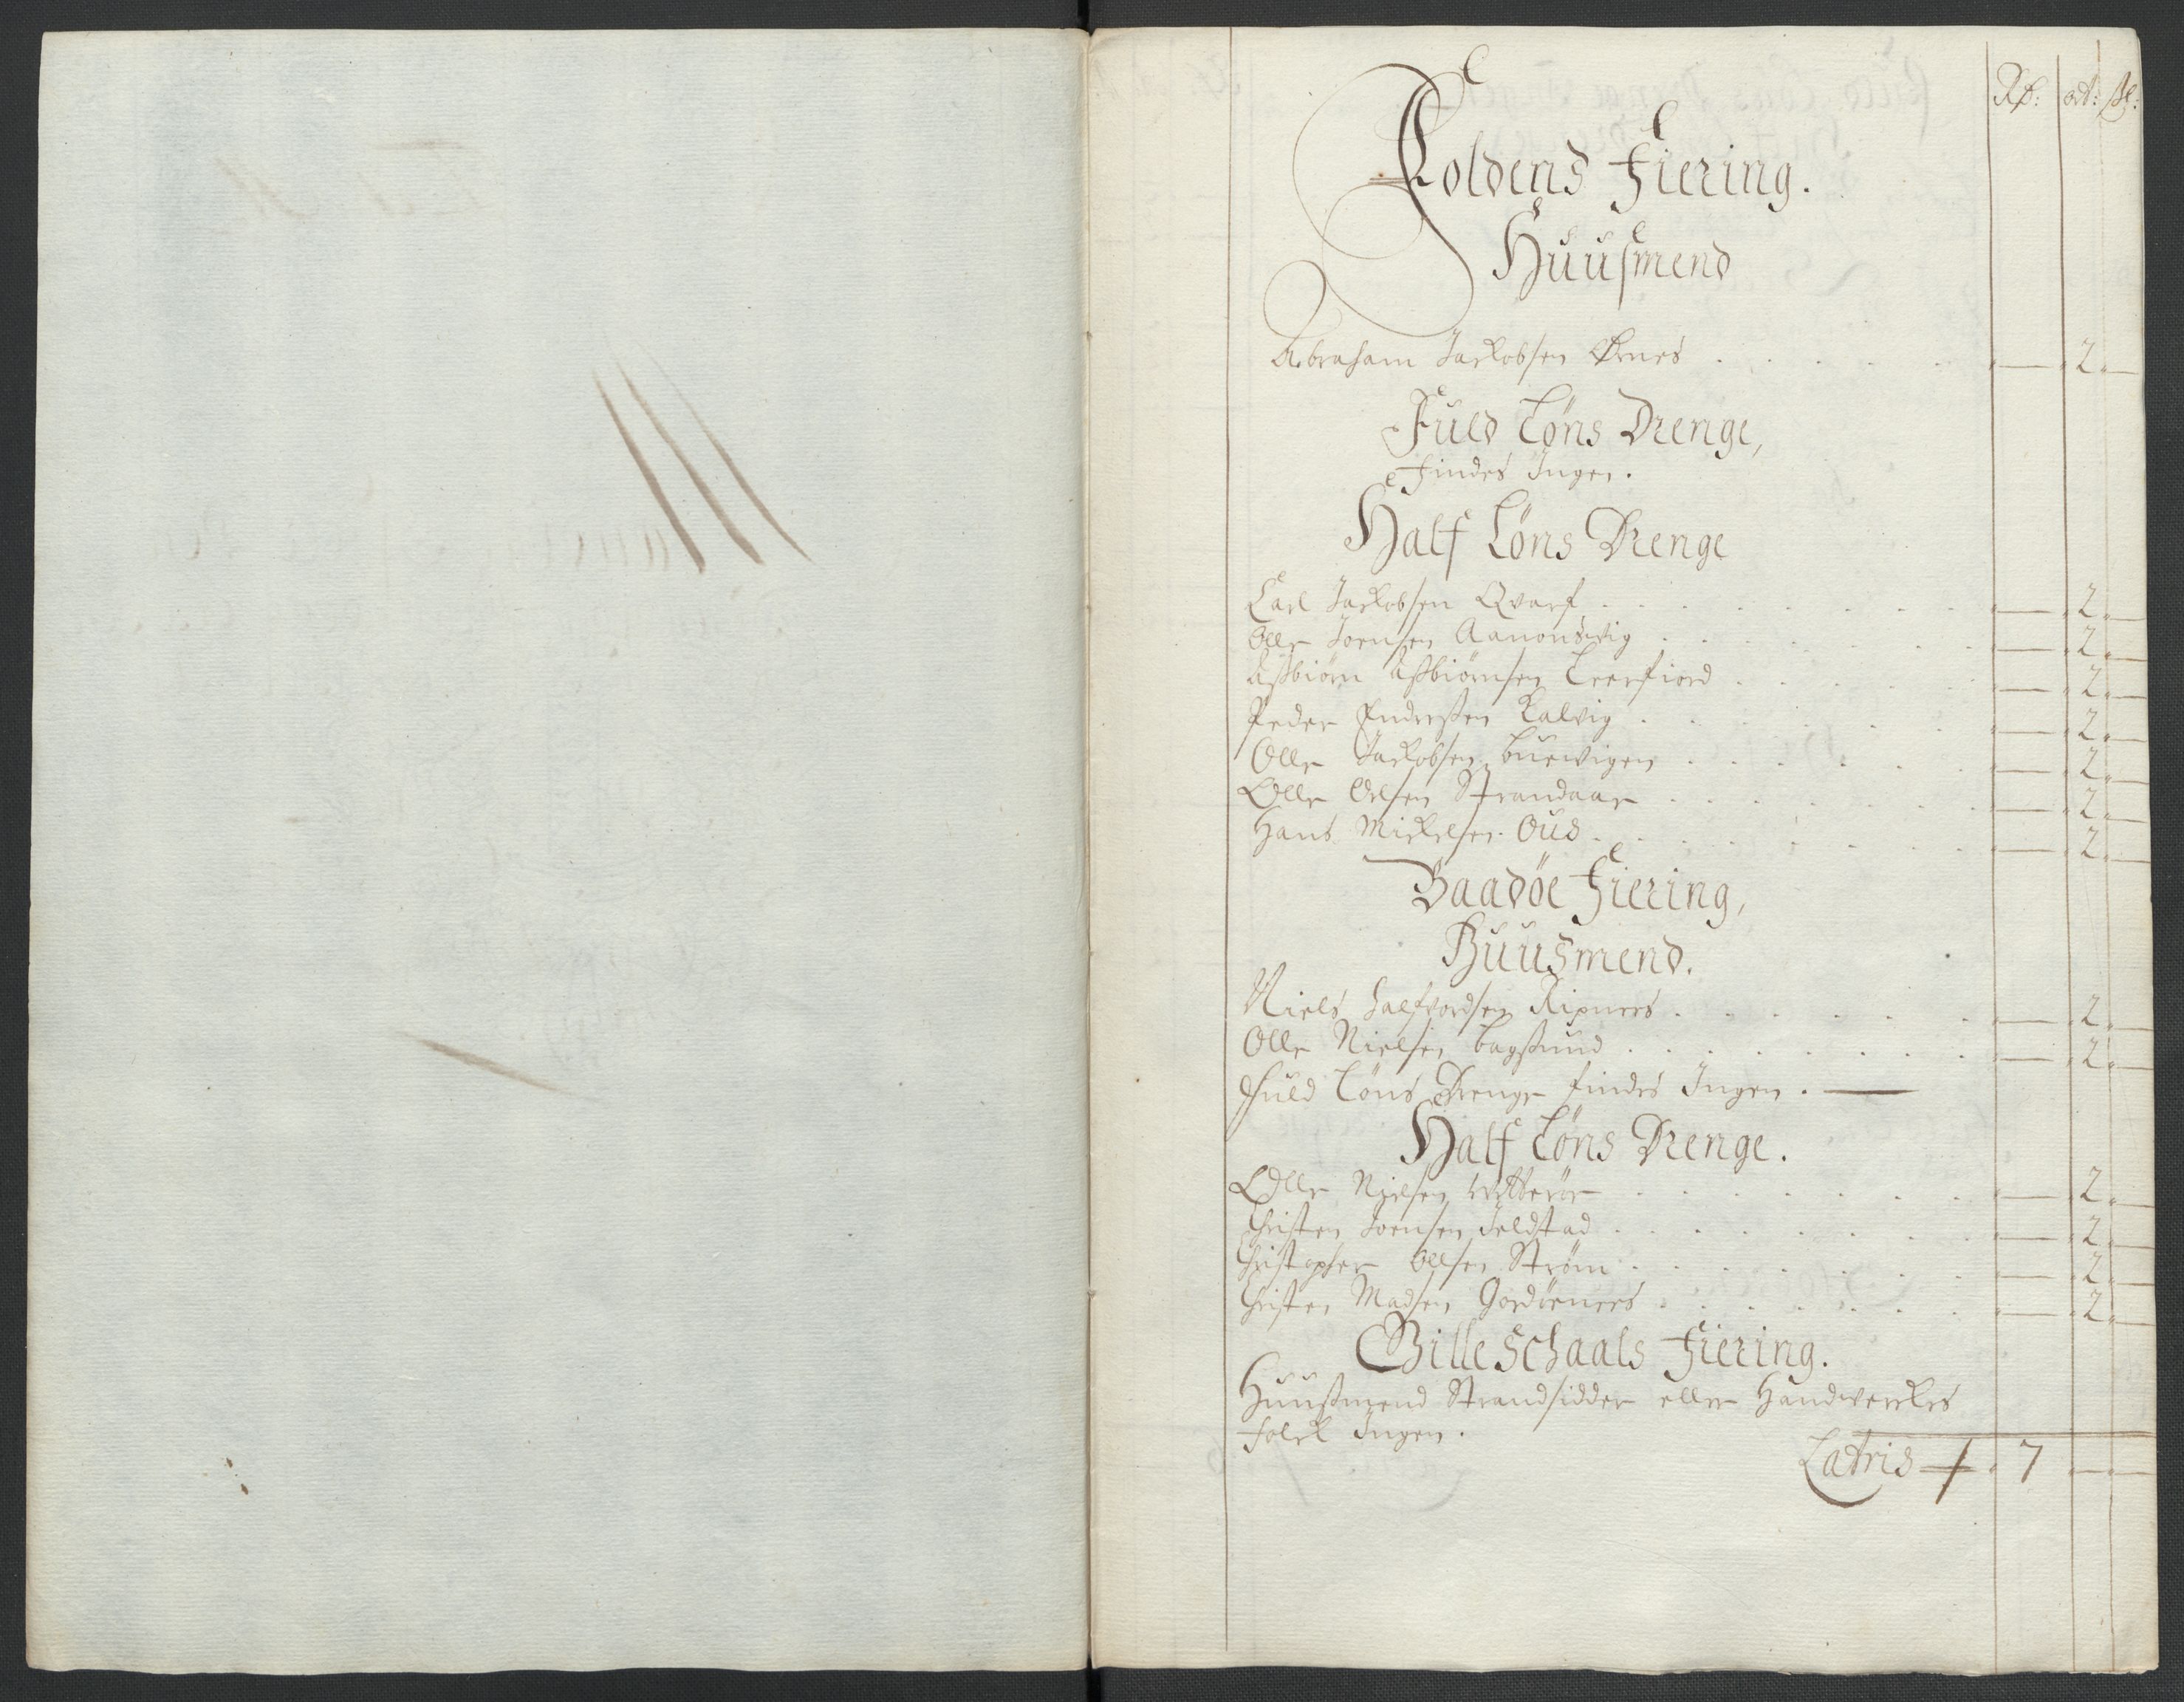 Rd: ort: sk:
Foldens Fiering.
Huusmend
Abraham Jackobsen Ørnes . . . . . — 2 —
Fuld Løns Drenge,
Findes Ingen.
Half Løns Drenge
Carl Jackobsen Qvarf . . . . . — 2 —
Olle Joensen Aanonsvig . . . . . — 2 —
Asbiørn Asbiørnsen Leerfiord . . . . . — 2 —
Peder Endresen Kalvig . . . . . — 2 —
Olle Jackobsen buevigen . . . . . — 2 —
Olle Olsen Strandaae . . . . . — 2 —
Hans Mickelsen Ous . . . . . — 2 —
Baadøe Fiering,
Huusmend.
Niels Halfvordsen Ripnees . . . . . — 2 —
Olle Nielsen bagsund . . . . . — 2 —
Fuld Løns Drenge findes Ingen . —
Half Løns Drenge.
Olle Nielsen . . . . . — 2 —
Christen Joensen Seldstad . . . . . — 2 —
Christopher Ollsen Strøm . . . . . — 2 —
Christen Madsen . . . . . — 2 —
Gilleschaals Fiering.
Huusmend Strandsidder eller Handverckes
Folck Ingen.
Latris 7 — —